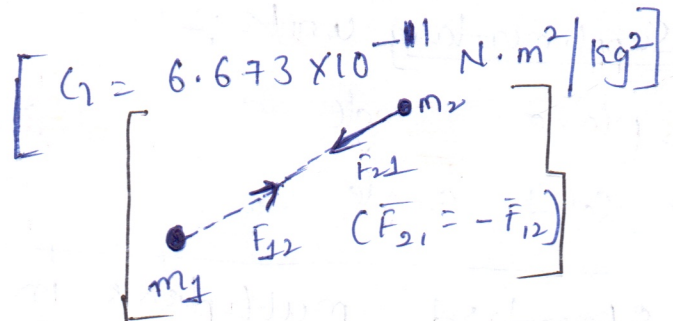 [G = 6.673 X10⁻¹¹ N.m²/kg²]
m2
F21
F12 (F̄21 = - F̄12)
m1